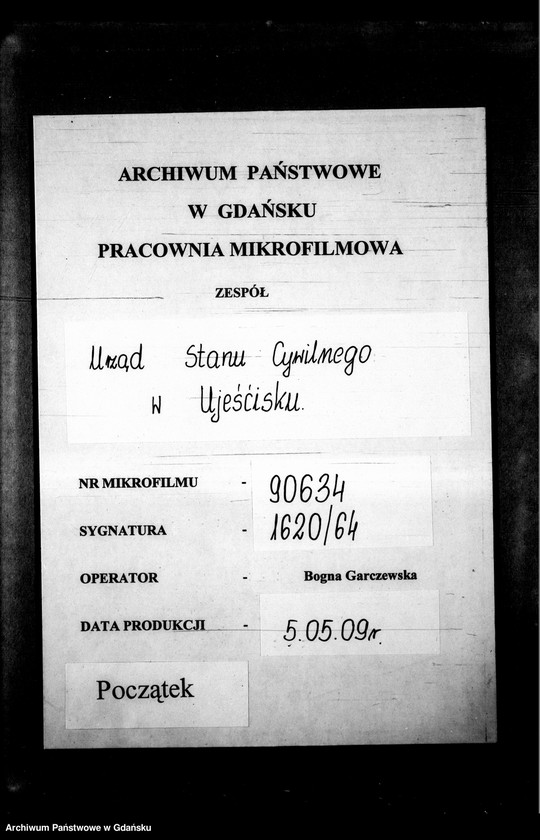 ARCHIWUM PAŃSTWOWE
W GDAŃSKU
PRACOWNIA MIKROFILMOWA
ZESPÓŁ
Urząd Stanu Cywilnego
w Ujeścisku.
NR MIKROFILMU - 90634
SYGNATURA - 1620/64
OPERATOR - Bogna Garczewska
DATA PRODUKCJI - 5.05.09r.
Początek
Archiwum Państwowe w Gdańsku